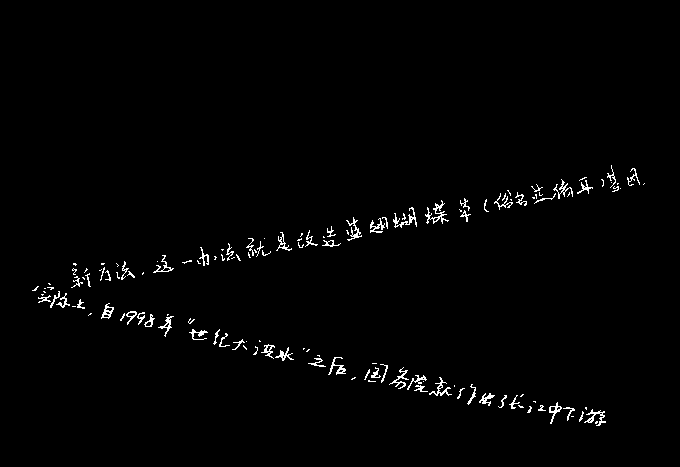 新方法，这一办法就是改造蓝翅蝴蝶草（俗名兰猪耳）基因，
实际上，自1998年“世纪大洪水”之后，国务院就作出长江中下游